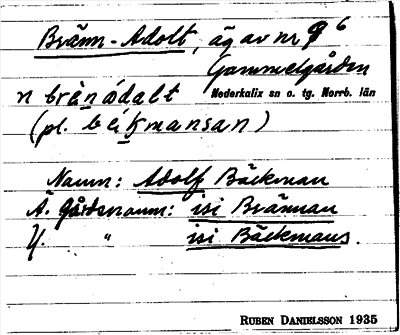 Bränn-Adolf, äg av nr 9 6
Gammelgården
Nederkalix sn o. tg. Norrb. län
n brän ádalt
(pl. beikmansan)
Namn: Adolf Bäckman
Ä. gårdsnamn: isi Brännan
Y. " isi Bäckmans.
RUBEN DANIELSSON 1935